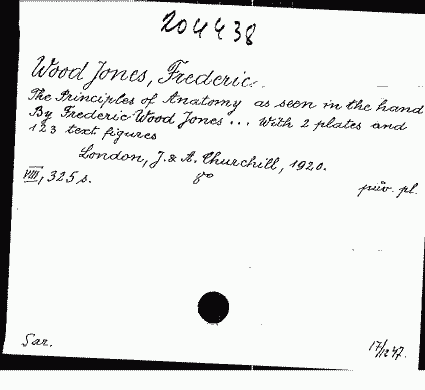 204438
Wood Jones, Frederic.
The Principles of Anatomy as seen in the hand
By Frederic Wood Jones ... With 2 plates and
123 text figures
London, J. & A. Churchill, 1920.
VIII, 325 s. 8° pův. pl.
Sar. 17/12 47.